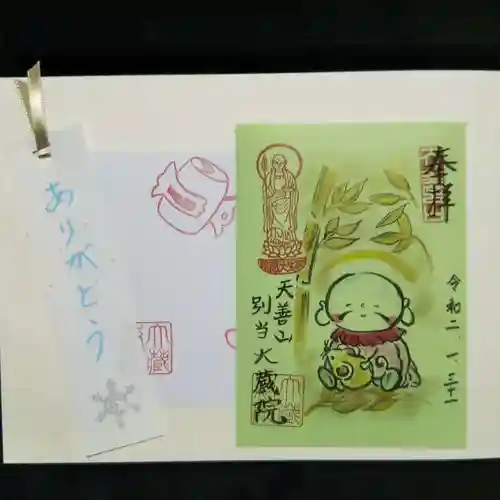 ありがとう
大蔵
奉拝
令和二、一、三十一
天善山
別当大蔵院